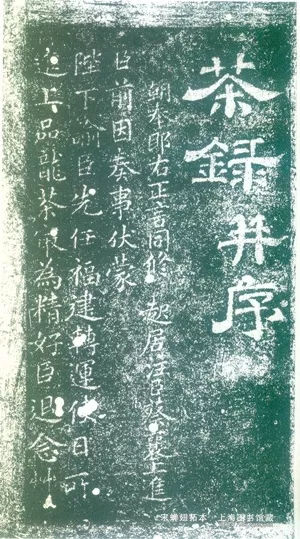 茶録并序
朝奉郎右正言同修 起居注臣蔡襄上進
臣前因奏事伏蒙
陛下諭臣先任福建轉運使日所
進上品龍茶最為精好臣退念艸
宋蝉翅拓本 上海图书馆藏